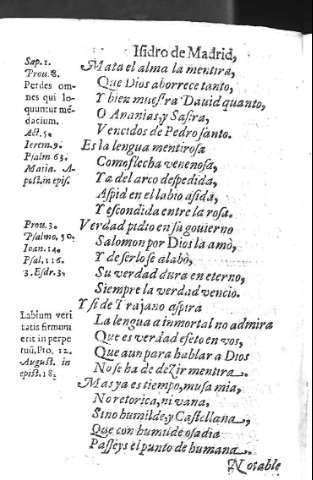 Isidro de Madrid,
Sap. 1.
Prou. 8.
Perdes om-
nes qui lo-
quuntur mẽ-
dacium.
Act. 5.
Ierem. 9.
Psalm 63.
Matia. A-
post. in epis.
Prou. 3.
Psalmo, 50.
Ioan. 14.
Psal, 116.
3. Esdr. 3.
Labium veri
tatis firmum
erit in perpe
tuũ, Pro. 12.
August. in
epist. 18.
Mata el alma la mentira,
Que Dios aborrece tanto,
Y bien muestra Dauid quanto,
O Ananias, y Safira,
Vencidos de Pedro santo.
Es la lengua mentirosa
Como flecha venenosa,
Ya del arco despedida,
Aspid en el labio asida,
Y escondida entre la rosa.
Verdad pidio en su gouierno
Salomon por Dios la amò,
Y de serlo se alabò,
Su verdad dura en eterno,
Siempre la verdad vencio.
Y si de Trajano aspira
La lengua a inmortal no admira
Que es verdad efeto en vos,
Que aun para hablar a Dios
No se ha de dezir mentira.
Mas ya es tiempo, musa mia,
No retorica, ni vana,
Sino humilde, y Castellana,
Que con humilde osadia
Passeys el punto de humana.
Notable